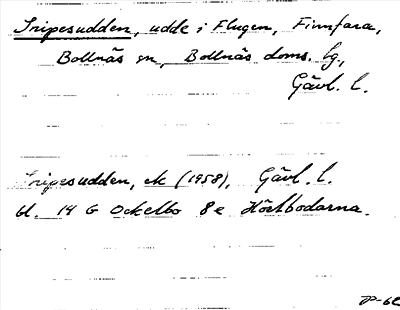 Snipesudden, udde i Flugen, Finnfara,
Bollnäs sn, Bollnäs doms. lg,
Gävl. l.
Snipesudden, ek (1958), Gävl. l.
bl. 14 G Ockelbo 8e Höstbodarna.